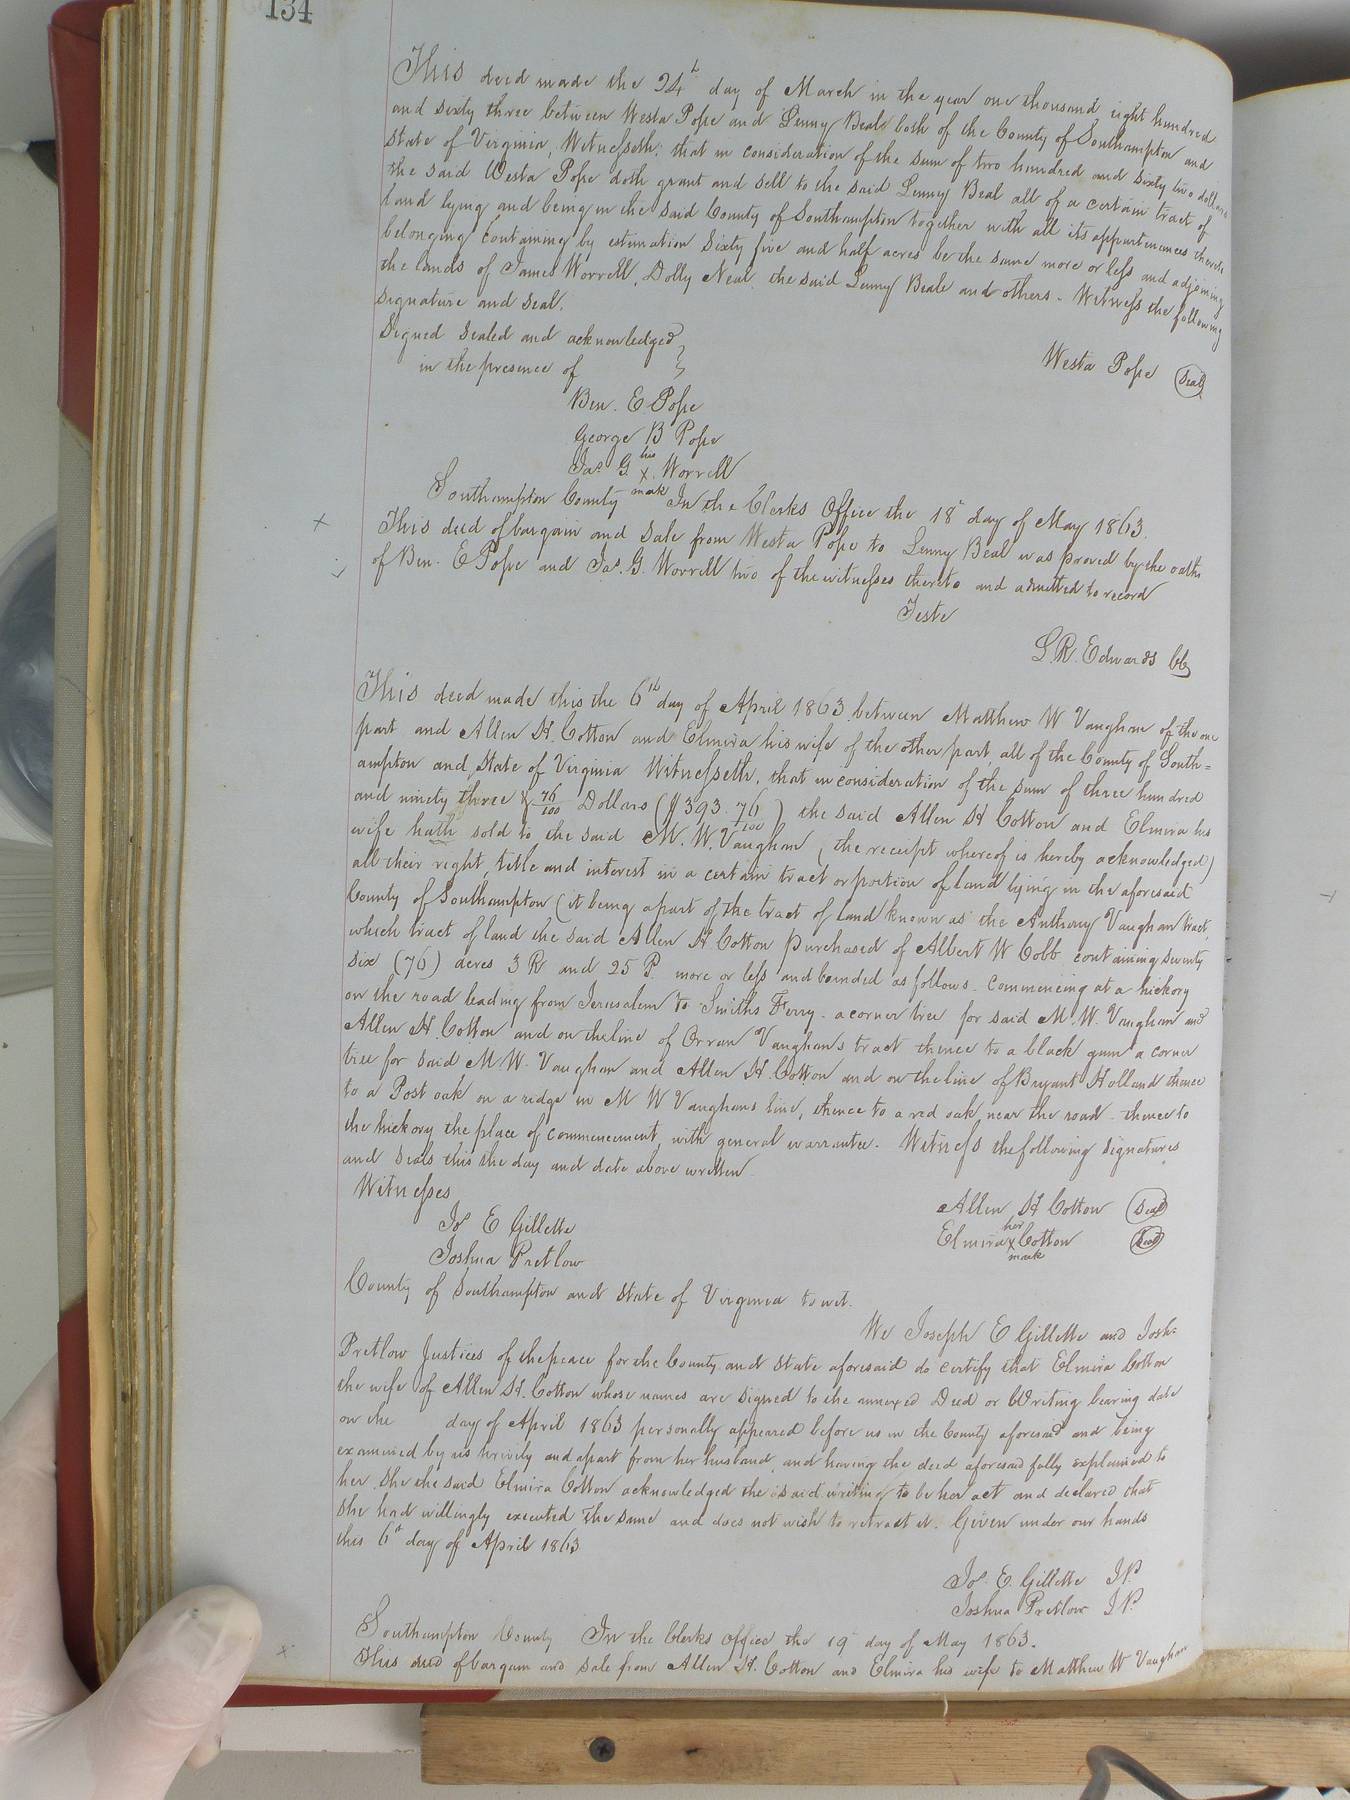 134
This deed made the 24th day of March in the year one thousand eight hundred
and sixty three between Westa Pope and Lenny Beal both of the County of Southampton and
State of Virginia, Witnesseth: that in consideration of the sum of two hundred and sixty two dollars
the said Westa Pope doth grant and sell to the said Lenny Beal all of a certain tract of
land lying and being in the said County of Southampton together with all its appurtenances thereto
belonging containing by estimation Sixty five and half acres be the same more or less and adjoining
the lands of James Worrell, Dolly Neal the said Lenny Beale and others - Witness the following
signature and seal.
Signed Sealed and acknowledged
in the presence of
Westa Pope (Seal)
Ben. E. Pope
George B Pope
Jas. G. his x mark Worrell
Southampton County In the Clerks Office the 18th day of May 1863.
This deed of bargain and Sale from Westa Pope to Lenny Beal was proved by the oaths
of Ben. E Pope and Jas. G. Worrell two of the witnesses thereto and admitted to record
Teste
L.R. Edwards CC
This deed made this the 6th day of April 1863 between Matthew W Vaughan of the one
part and Allen H. Cotton and Elmira his wife of the other part, all of the County of South=
ampton and State of Virginia Witnesseth, that in consideration of the sum of three hundred
and ninety three & 76/100 Dollars ($393.76/100) the said Allen H Cotton and Elmira his
wife hath sold to the said M. W. Vaughan (the receipt whereof is hereby acknowledged)
all their right, title and interest in a certain tract or portion of land lying in the aforesaid
County of Southampton (it being a part of the tract of land known as the Anthony Vaughan tract,
which tract of land the said Allen H Cotton purchased of Albert W Cobb containing seventy
six (76) acres 3 R and 25 P. more or less and bounded as follows. Commencing at a hickory
on the road leading from Jerusalem to Smiths Ferry - a corner tree for said M. W. Vaughan and
Allen H. Cotton and on the line of Orran Vaughans tract thence to a black gum a corner
tree for said M. W. Vaughan and Allen H. Cotton and on the line of Bryant Holland thence
to a Post oak on a ridge in M W Vaughans line, thence to a red oak near the road - thence to
the hickory the place of commencement, with general warrantee. Witness the following signatures
and seals this the day and date above written
Witnesses
Jos E Gillette
Joshua Pretlow
Allen H Cotton (Seal)
Elmira her x mark Cotton (Seal)
County of Southampton and State of Virginia to wit.
We Joseph E Gillette and Josh=
Pretlow Justices of the peace for the County and State aforesaid do certify that Elmira Cotton
the wife of Allen H. Cotton whose names are signed to the annexed Deed or Writing bearing date
on the day of April 1863 personally appeared before us in the County aforesaid and being
examined by us privily and apart from her husband and having the deed aforesaid fully explained to
her, she the said Elmira Cotton acknowledged the said writing to be her act and declared that
she had willingly executed the same and does not wish to retract it. Given under our hands
this 6th day of April 1863
Jos. E. Gillette J.P.
Joshua Pretlow J.P.
Southampton County In the Clerks office the 19th day of May 1863.
This deed of bargain and sale from Allen H. Cotton and Elmira his wife to Matthew W Vaughan